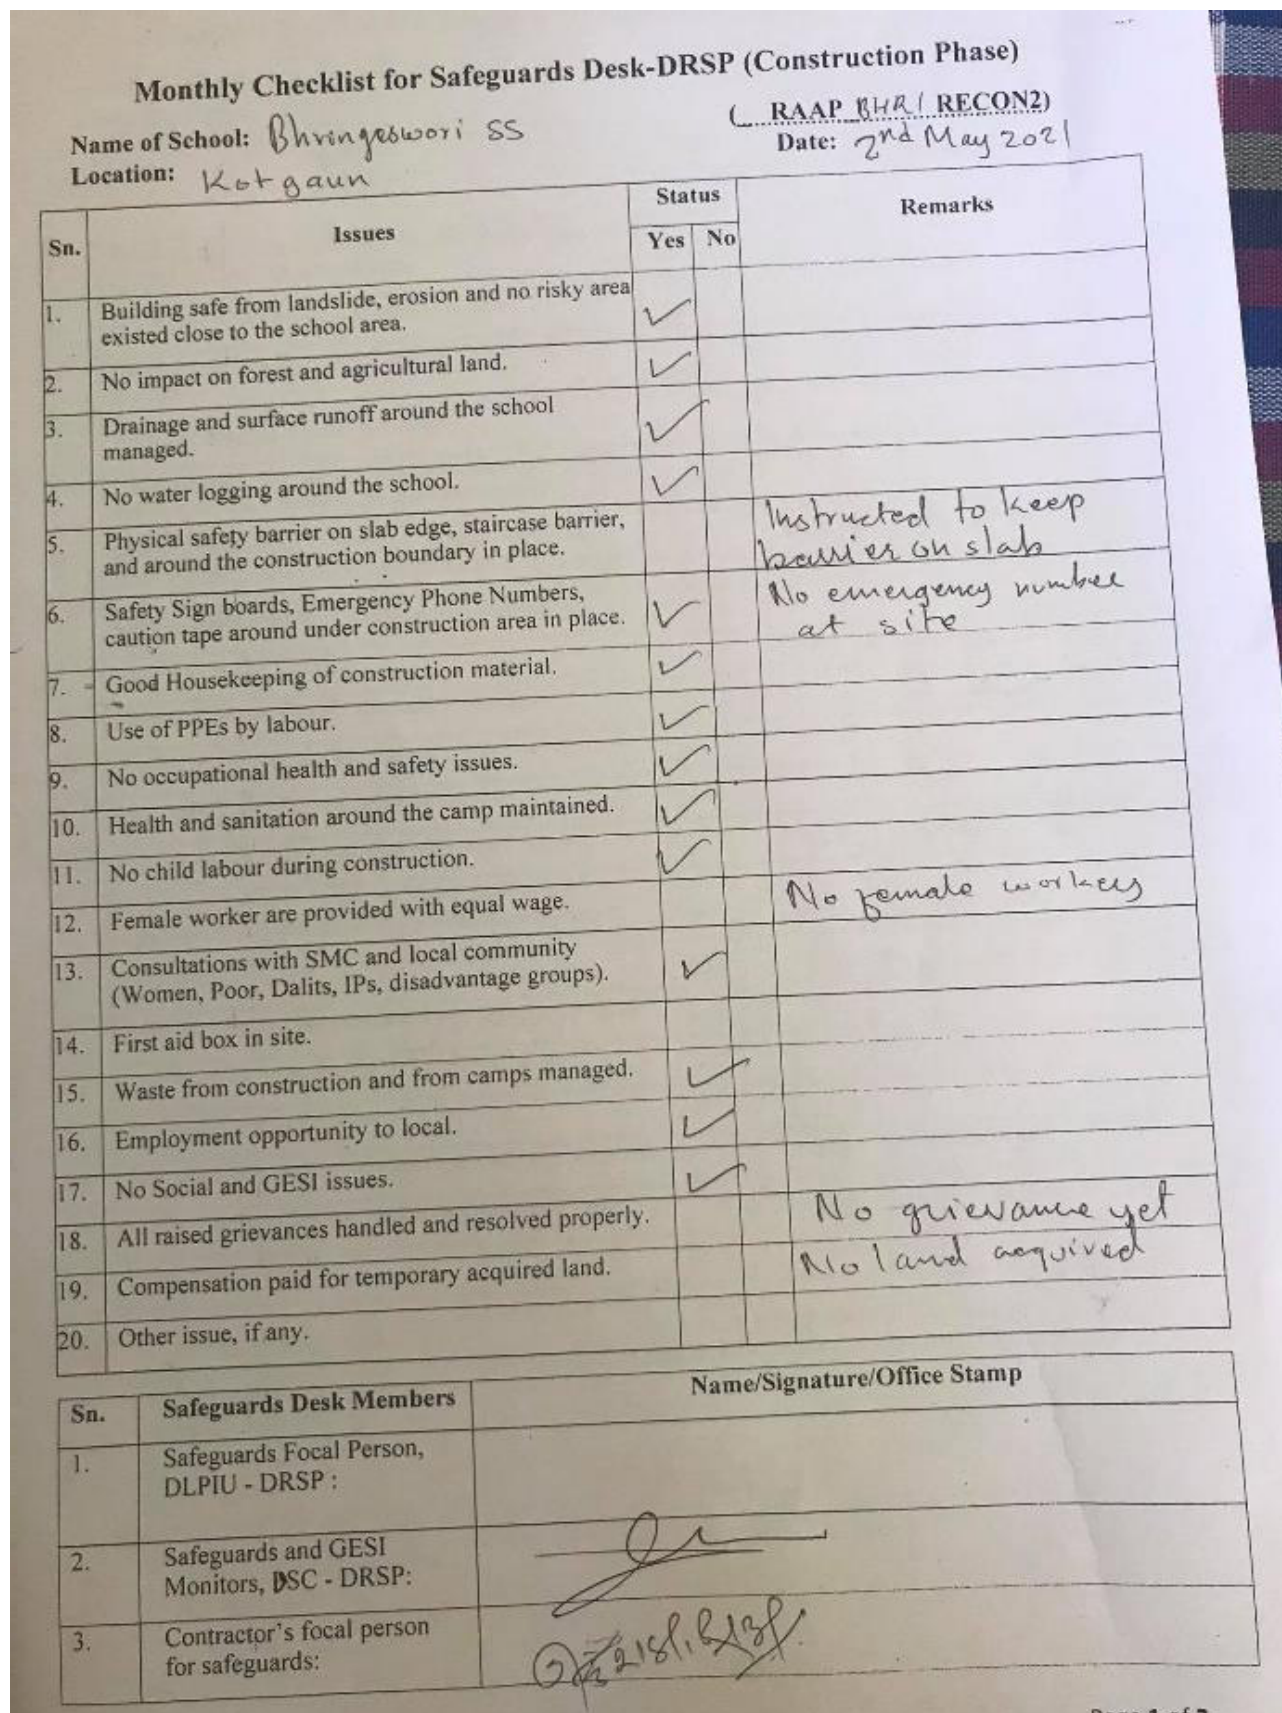 Monthly Checklist for Safeguards Desk-DRSP (Construction Phase)
(.....RAAP BHRI RECON2)
Name of School: Bhringeswori SS
Date: 2nd May 2021
Location: Kotgaun
Sn. Issues Status Remarks
Yes No
1. Building safe from landslide, erosion and no risky area
existed close to the school area. ✓
2. No impact on forest and agricultural land. ✓
3. Drainage and surface runoff around the school
managed. ✓
4. No water logging around the school. ✓
5. Physical safety barrier on slab edge, staircase barrier, Instructed to keep
and around the construction boundary in place. barrier on slab
6. Safety Sign boards, Emergency Phone Numbers, No emergency number
caution tape around under construction area in place. ✓ at site
7. Good Housekeeping of construction material. ✓
8. Use of PPEs by labour. ✓
9. No occupational health and safety issues. ✓
10. Health and sanitation around the camp maintained. ✓
11. No child labour during construction. ✓
12. Female worker are provided with equal wage. No female workers
13. Consultations with SMC and local community
(Women, Poor, Dalits, IPs, disadvantage groups). ✓
14. First aid box in site.
15. Waste from construction and from camps managed. ✓
16. Employment opportunity to local. ✓
17. No Social and GESI issues. ✓
18. All raised grievances handled and resolved properly. No grievance yet
19. Compensation paid for temporary acquired land. No land acquired
20. Other issue, if any.
Sn. Safeguards Desk Members Name/Signature/Office Stamp
1. Safeguards Focal Person,
DLPIU - DRSP :
2. Safeguards and GESI
Monitors, DSC - DRSP:
3. Contractor's focal person
for safeguards: